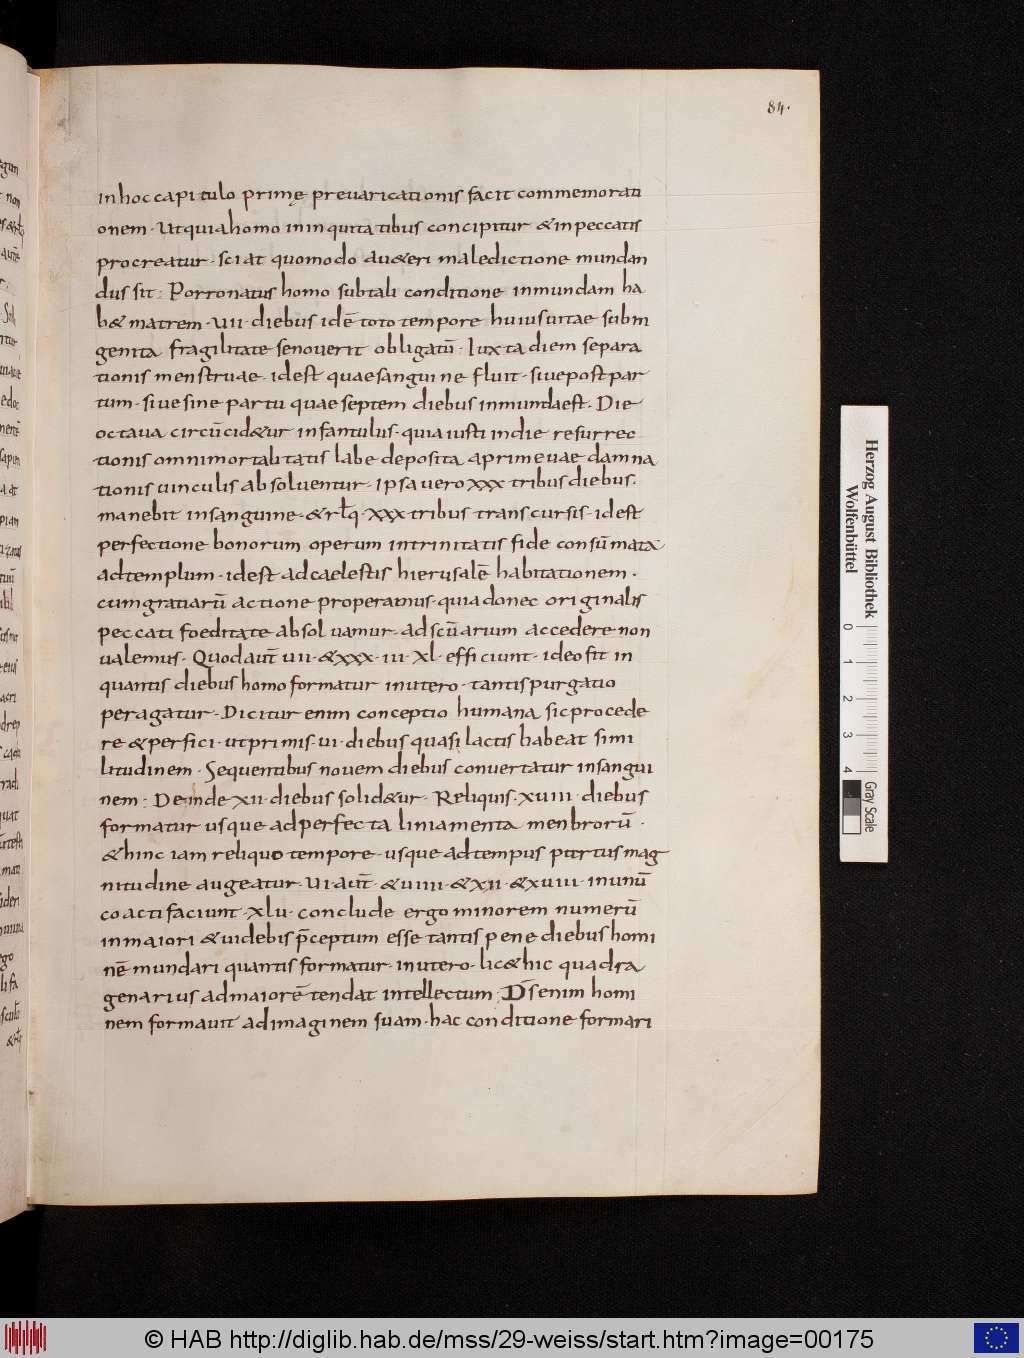 84.
in hoc capitulo primę prevaricationis facit commemorati
onem · Ut quia homo in inquitatibus concipitur & in peccatis
procreatur · sciat quomodo au&eri maledictione mundan
dus sit : Porro natus homo sub tali conditione inmundam ha
b& matrem · VII · diebus id ē toto tempore huius vitae sub in
genita fragilitate se noverit obligatū · Iuxta diem separa
tionis menstruae · id est quae sanguine fluit · sive post par
tum · sive sine partu quae septem diebus inmunda est · Die
octava circūcid&ur infantulus · quia iusti in die resurrec
tionis omni mortalitatis labe deposita a primevae damna
tionis vinculis absolventur · Ipsa vero XXX tribus diebus ·
manebit in sanguine · & rł q · XXX tribus transcursis · id est
perfectione bonorum operum in trinitatis fide consūmata
ad templum · id est ad caelestis hierusalē habitationem ·
cum gratiarū actione properamus · quia donec originalis
peccati foeditate absolvamur · ad scūarium accedere non
valemus · Quod aut̄ VII · & XXX · III · XL · efficiunt · ideo fit in
quantis diebus homo formatur in utero · tantis purgatio
peragatur · Dicitur enim conceptio humana sic procede
re & perfici · ut primis VI · diebus quasi lactis habeat simi
litudinem · Sequentibus novem diebus convertatur in sangui
nem : Deinde XII · diebus solid&ur · Reliquis · XVIII · diebus
formatur usque ad perfecta liniamenta menbrorū ·
& hinc iam reliquo tempore · usque ad tempus partus mag
nitudine augeatur · VI · aut̄ · & VIIII · & XII · & XVIII · in unū
coacti faciunt · XLV · conclude ergo minorem numerū
in maiori & videbis p̄ceptum esse tantis pene diebus homi
nē mundari quantis formatur · in utero · lic& hic quadra
genarius ad maiorē tendat intellectum · D̄s enim homi
nem formavit ad imaginem suam · hac conditione formari
Herzog August Bibliothek
Wolfenbüttel
0 1 2 3 4
Gray Scale
© HAB http://diglib.hab.de/mss/29-weiss/start.htm?image=00175